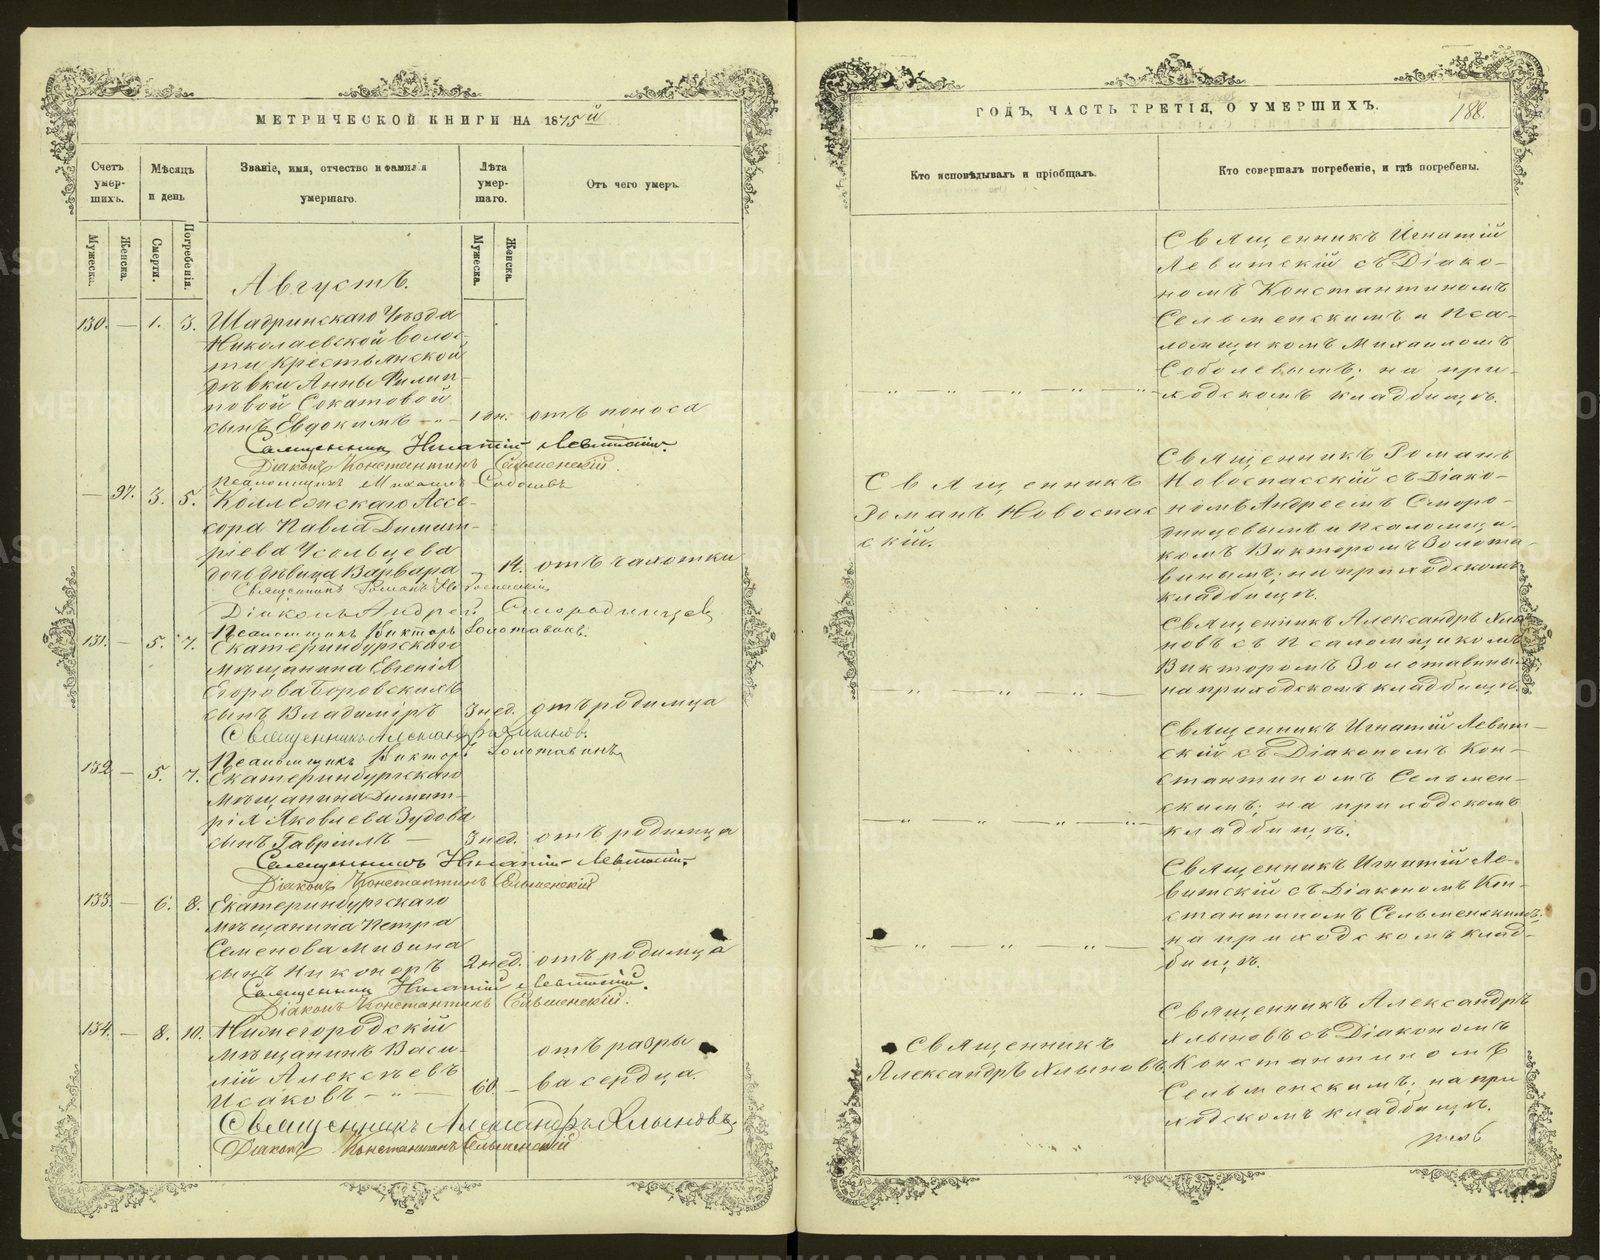 МЕТРИЧЕСКОЙ КНИГИ НА 1875й
Счетъ умер-шихъ.
Мѣсяцъ и день
Званіе, имя, отчество и фамилія умершаго.
Лѣта умер-шаго.
Отъ чего умеръ.
Мужеска.
Женска.
Смерти.
Погребенія.
Мужеска.
Женска.
Августъ.
130. — 1. 3. Шадринскаго Уѣзда
Николаевской волос-
ти крестьянской
дѣвки Анны Филип-
повой Сокатовой
сынъ Евдокимъ — 1 дн. отъ поноса
Священникъ Игнатій Левитскій.
Діаконъ Константинъ Сельменскій.
Псаломщикъ Михаилъ Соболевъ
— 97. 3. 5. Коллежскаго Ассе-
сора Павла Димит-
ріева Усольцева
дочь дѣвица Варвара 14. отъ чахотки
Священникъ Романъ Новоспасскій
Діаконъ Андрей Смородинцев
Псаломщикъ Викторъ Золотавинъ.
131. — 5. 7. Екатеринбургскаго
мѣщанина Евгенія
Егорова Боровскихъ
сынъ Владиміръ 3 нед. отъ родимца
Священникъ Александръ Хлыновъ.
Псаломщикъ Викторъ Золотавинъ
132 — 5. 7. Екатеринбургскаго
мѣщанина Димит-
рія Яковлева Зудова
сынъ Гавріилъ — 3 нед. отъ родимца
Священникъ Игнатій Левитскій
Діаконъ Константинъ Сельменскій
133. — 6. 8. Екатеринбургскаго
мѣщанина Петра
Семенова Мизина
сынъ Никоноръ 2 нед. отъ родимца
Священникъ Игнатій Левитскій.
Діаконъ Константинъ Сельменскій.
134. — 8. 10. Нижегородскій
мѣщанинъ Васи-
лій Алексѣевъ
Исаковъ — „ — 60. — отъ разры-
ва сердца.
Священникъ Александръ Хлыновъ.
Діаконъ Константинъ Сельменскій
ГОДЪ, ЧАСТЬ ТРЕТІЯ, О УМЕРШИХЪ.
188.
Кто исповѣдывалъ и пріобщалъ.
Кто совершалъ погребеніе, и гдѣ погребены.
Священникъ Игнатій
Левитскій съ Діако-
номъ Константиномъ
Сельменскимъ и Пса-
ломщикомъ Михаиломъ
Соболевымъ; на при-
— „ — „ — „ — „ — ходскомъ кладбищѣ.
Священникъ
Романъ Новоспас
скій.
Священникъ Романъ
Новоспасскій съ Діако-
номъ Андреемъ Сморо-
динцевымъ и Псаломщи-
комъ Викторомъ Золота-
винымъ; на приходскомъ
кладбищѣ.
Священникъ Александръ Хлы
новъ съ Псаломщикомъ
Викторомъ Золотавинымъ
— „ — „ — „ — на приходскомъ кладбищѣ.
Священникъ Игнатій Левит-
скій съ Діакономъ Кон-
стантиномъ Сельмен-
скимъ; на приходскомъ
— „ — „ — „ — кладбищѣ.
Священникъ Игнатій Ле-
витскій съ Діакономъ Кон-
стантиномъ Сельменскимъ;
— „ — „ — „ — на приходскомъ клад-
бищѣ.
Священникъ
Александръ Хлыновъ.
Священникъ Александръ
Хлыновъ съ Діакономъ
Константиномъ
Сельменскимъ; на при
ходскомъ кладбищѣ.